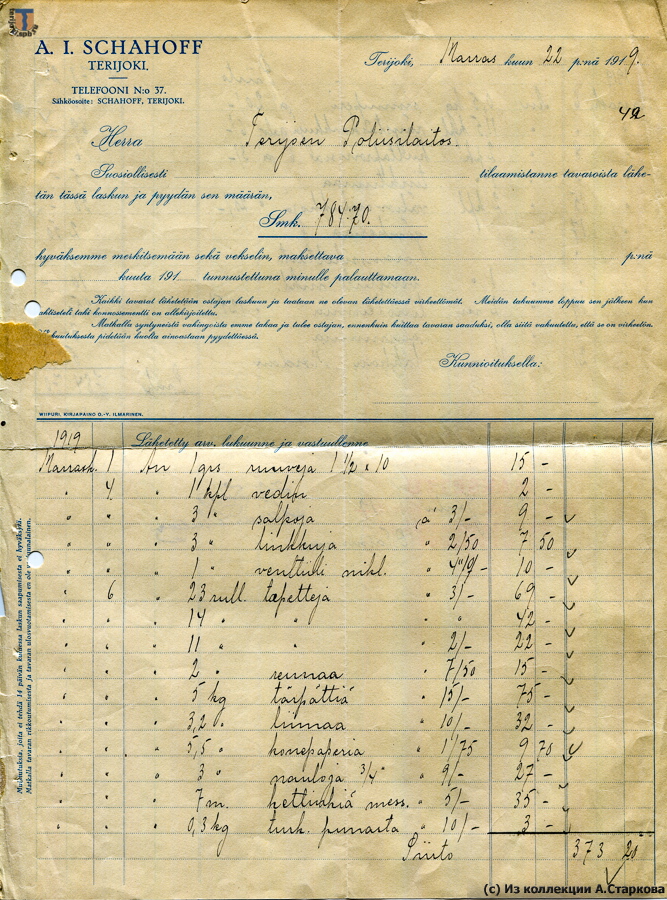 A. I. SCHAHOFF
TERIJOKI.
TELEFOONI N:o 37.
Sähköosoite: SCHAHOFF, TERIJOKI.
Terijoki, Marras kuun 22 p:nä 1919.
42
Herra Terijoen Poliisilaitos.
Suosiollisesti tilaamistanne tavaroista lähe-
tän tässä laskun ja pyydän sen määrän,
Smk. 784:70.
hyväksemme merkitsemään sekä vekselin, maksettava p:nä
kuuta 191 tunnustettuna minulle palauttamaan.
Kaikki tavarat lähetetään ostajan laskuun ja taataan ne olevan lähetettäessä virheettömät. Meidän takuumme loppuu sen jälkeen kun
ahtiseteli taki konnossementti on allekirjoitettu.
Matkalla syntyneistä vahingoista emme takaa ja tulee ostajan, ennenkuin kuittaa tavaran saaduksi, olla siitä vakuutettu, että se on virheetön.
Vakuutuksesta pidetään huolta ainoastaan pyydettäessä.
Kunnioituksella:
WIIPURI. KIRJAPAINO O.-Y. ILMARINEN.
1919 Lähetetty arv. lukuunne ja vastuullenne
Marrask. 1 An 1 grs ruuveja 1 1/2 x 10 15 -
" 4 " 1 kpl vedin 2 -
" " " 3 " salpoja á 3/- 9 -
" " " 3 " linkkuja " 2/50 7 50
" " " 1 " venttiili nikl. " 10 -
" 6 " 23 rull. tapetteja " 3/- 69 -
" " " 14 " " " " 42 -
" " " 11 " " " 2/- 22 -
" " " 2 " reunaa " 7/50 15 -
" " " 5 kg tärpättiä " 15/- 75 -
" " " 3,2 " liimaa " 10/- 32 -
" " " 5,5 " konepaperia " 1/75 9 70
" " " 3 " nauloja 3/4" " 9/- 27 -
" " " 7 m. mess. " 5/- 35 -
" " " 0,3 kg turk. punaista " 10/- 3 -
Siirto 373 20
Muistutuksia, joita ei tehdä 14 päivän kuluessa laskun saapumisesta ei hyväksytä.
(c) Из коллекции А.Старкова